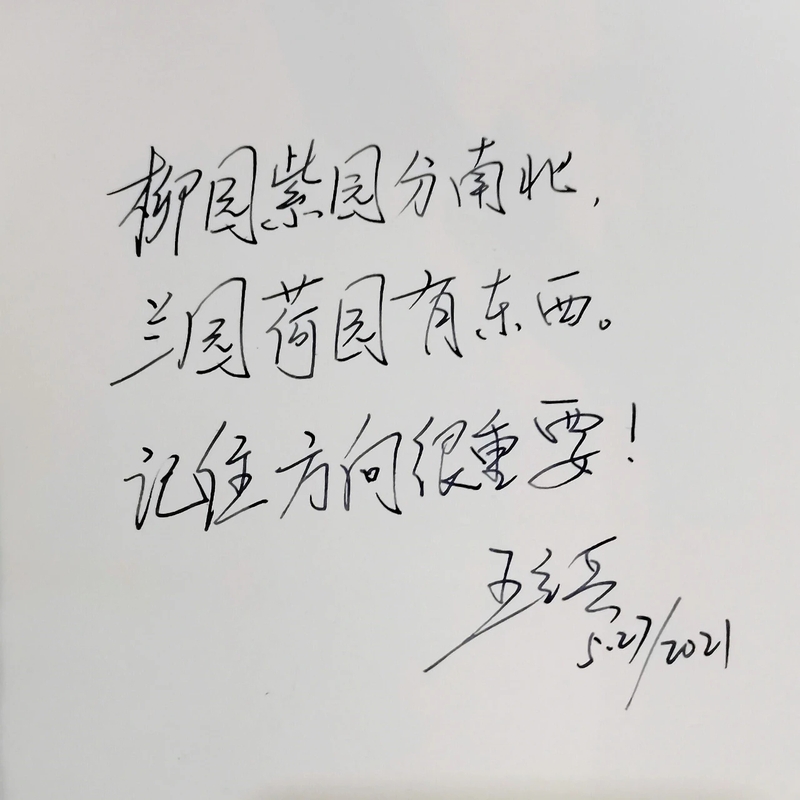 柳园紫园分南北,
兰园荷园有东西。
记住方向很重要!
5.27/2021